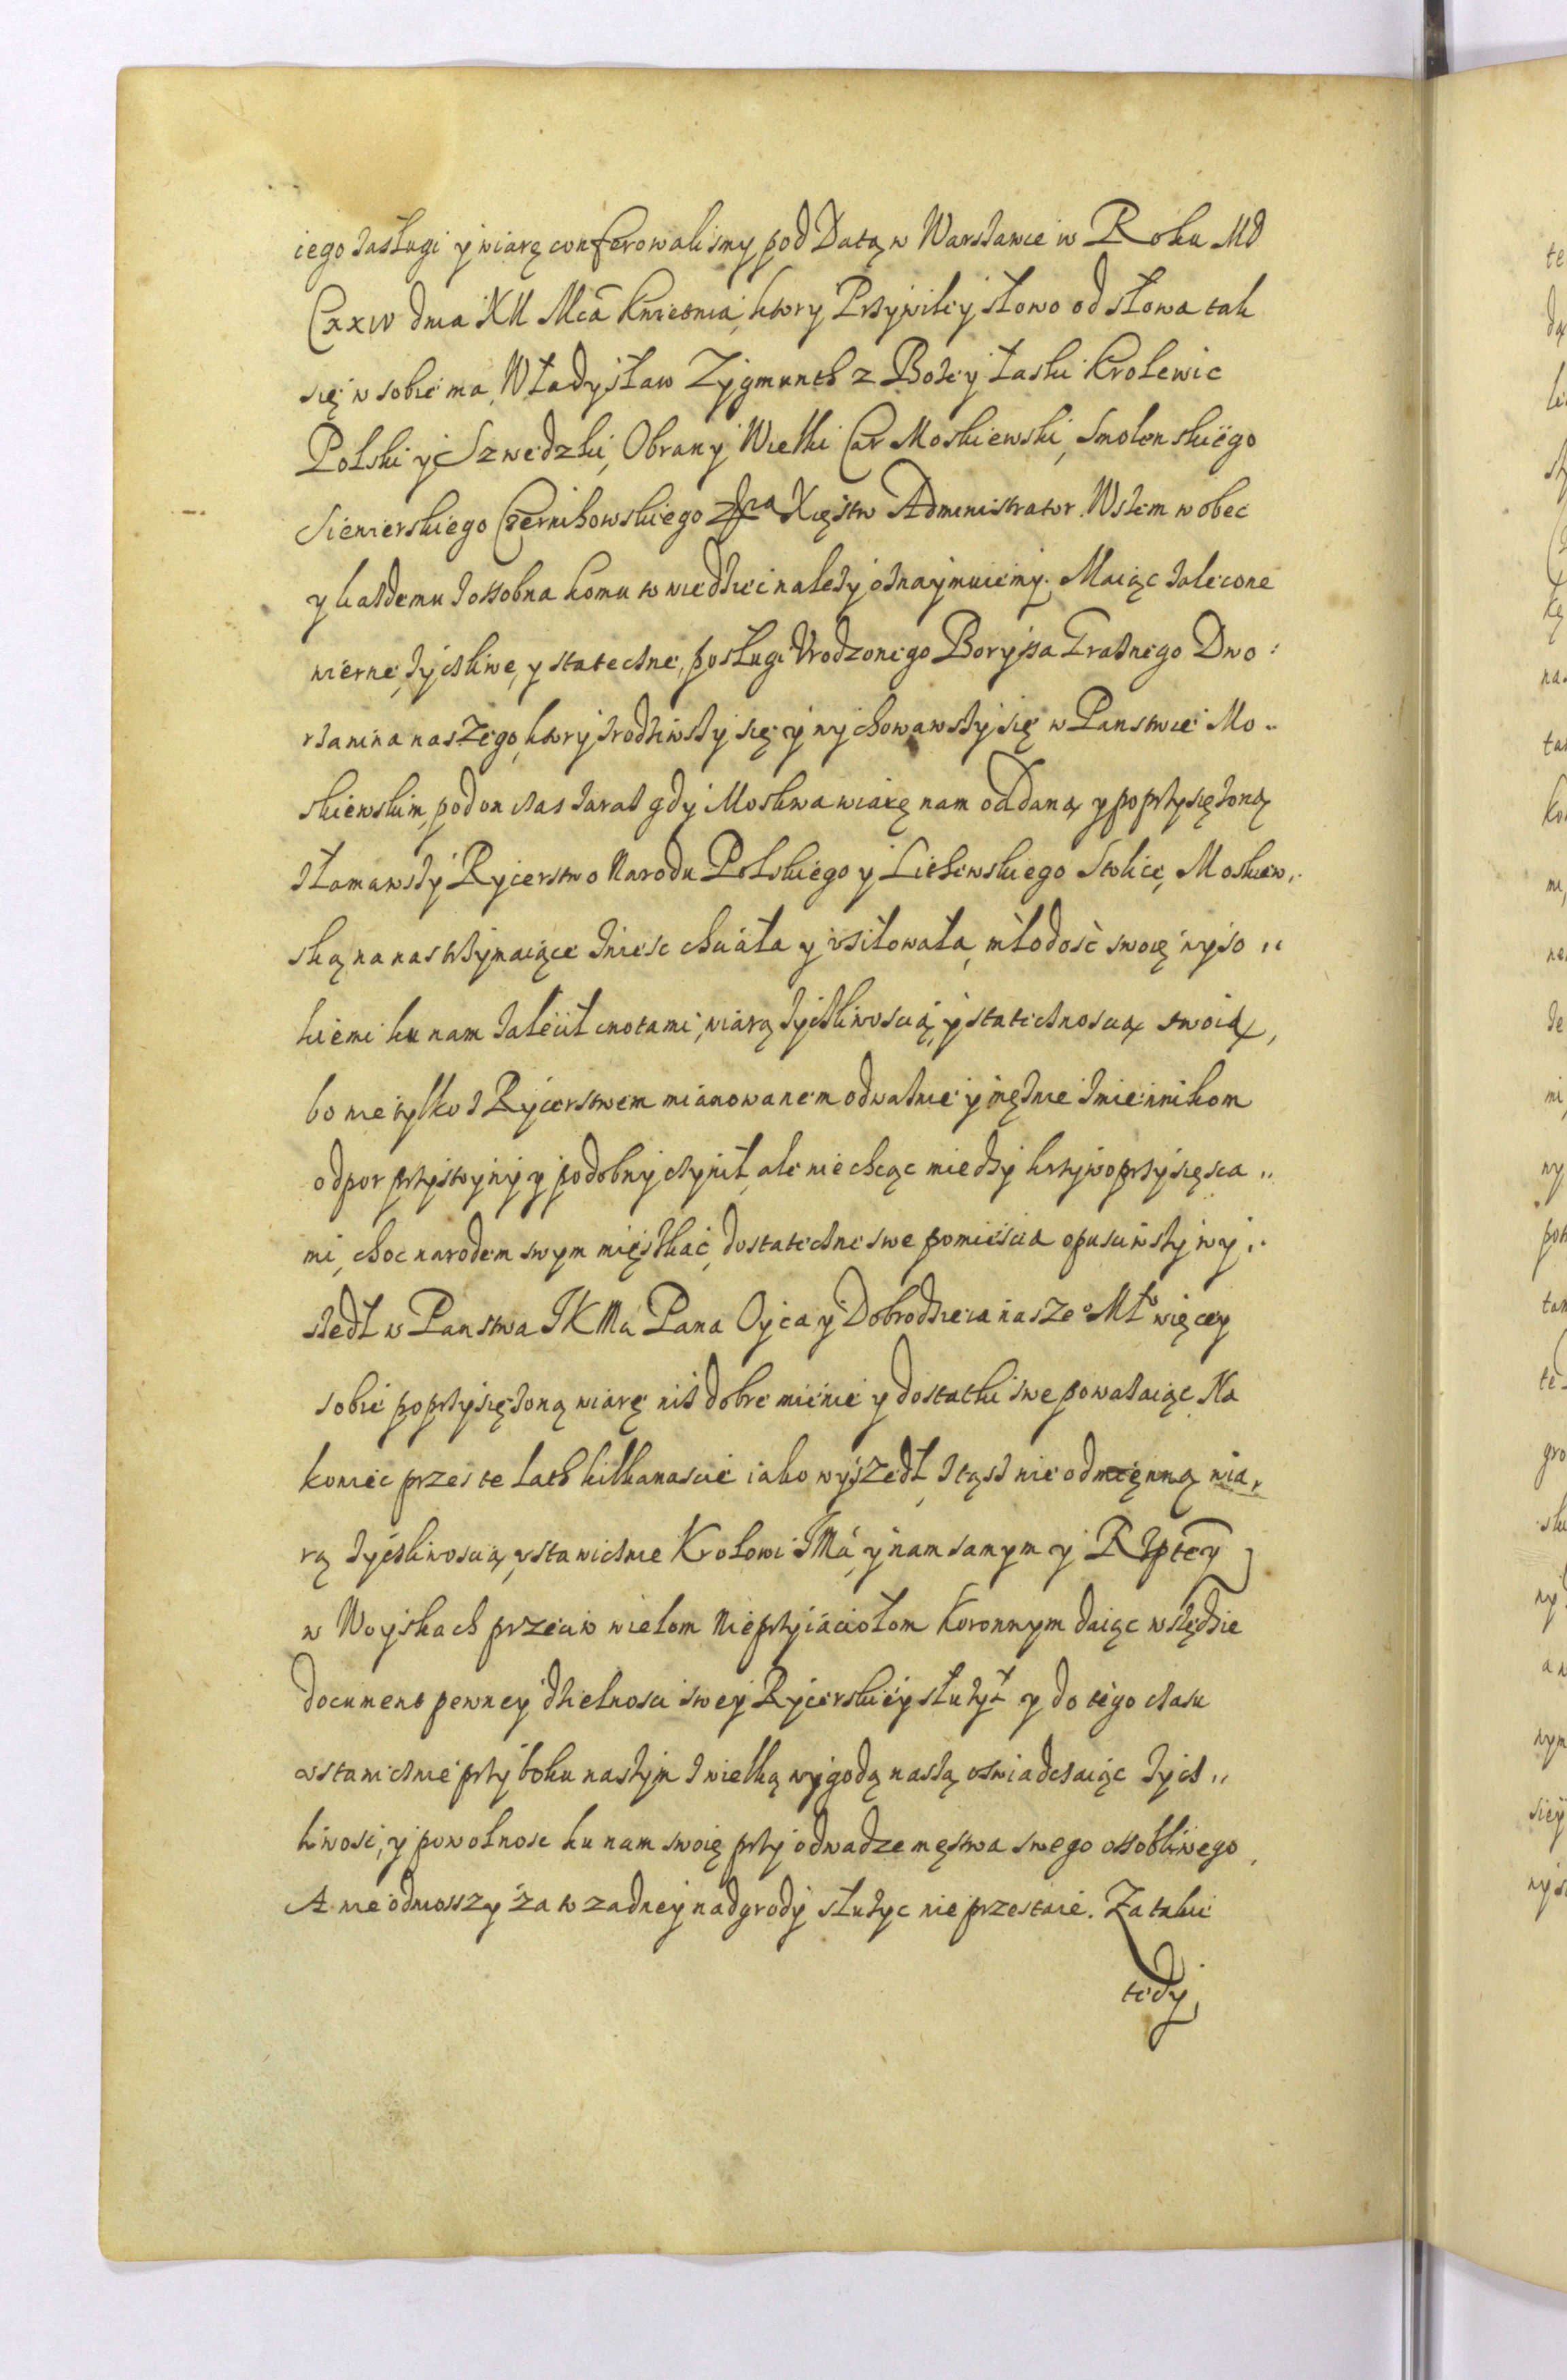 iego zasługi y wiarę conferowalismy pod Datą w Warszawie w Roku MD
CXXIV dnia XII Mca Kwietnia, ktory Przywiley słowo od słowa tak
się w sobie ma, Władysław Zygmunth z Bozey łaski Krolewic
Polski y Szwedzki, Obrany Wielki Car Moskiewski, Smolenskiego
Siewierskiego Czernihowskiego Xięstw Administrator. Wszem wobec
y kazdemu zossobna komu to wiedziec nalezy oznaymuiemy. Maiąc zalecone
wierne, zyczliwe, y stateczne, posługi Vrodzonego Boryssa Graznego Dwo:
rzanina naszego, ktory zrodziwszy się y wychowawszy się w Panstwie Mo..
skiewskim, pod on czas zaraz gdy Moskwa wiarę nam oddaną y poprzysięzoną
złamawszy Rycerstwo Narodu Polskiego y Lithewskiego Stolicę Moskiew,.
ską na nas trzymaiące zniesc chciała y vsiłowała, młodosc swoię wyso..
kiemi ku nam zalecił cnotami, wiarą zyczliwoscią, y statecznoscią swoią,
bo nie tylko z Rycerstwem mianowanem odwaznie y męznie zmiennikom
odpor przystoyny y podobny czynił, ale nie chcąc miedzy krzywoprzysięsca..
mi, choc narodem swym mięszkac, dostateczne swe pomiescia opusciwszy wy..
szedł w Panstwa JKMci Pana Oyca y Dobrodzieia naszeº Młº więcey
sobie poprzysięzoną wiarę niz dobre mienie y dostatki swe powazaiąc. Na
koniec przes te lath kilkanascie iako wyszedł, z tąsz nieodmięnną wia,
rą zyczliwoscią, vstawicznie Krolowi JMci, y nam samym y Rzptey
w Woyskach przeciw wielom Nieprzyiaciołom Koronnym daiąc wszędzie
document pewney dzielnosci swey Rycerskiey słuzył y do tego czasu
vstawicznie przy boku naszym z wielką wygodą naszą oswiadczaiąc zycz..
liwosc, y powolnosc ku nam swoię przy odwadze męstwa swego ossobliwego,
A nie odniosszy za to zadney nadgrody słuzyc nie przestaie. Za takie
tedy,